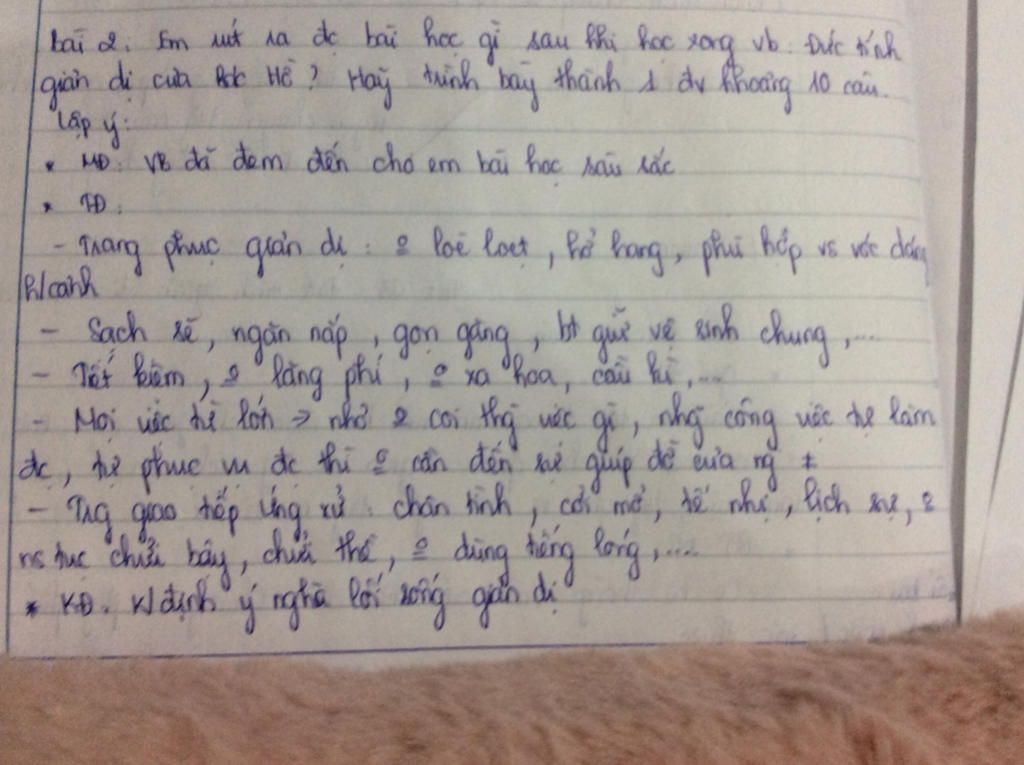 bài 2. Em rút ra đc bài học gì sau khi học xong vb. Đức tính
giản dị của Bác Hồ? Hãy trình bày thành 1 đv khoảng 10 câu.
Lập ý:
* MĐ: VB đã đem đến cho em bài học sâu sắc
* TĐ:
- Trang phục giản dị: loè loẹt, hở hang, phù hợp vs vóc dáng
h/cảnh
- Sạch sẽ, ngăn nắp, gọn gàng, bt giữ vệ sinh chung,...
- Tiết kiệm, lãng phí, xa hoa, cầu kì,...
- Mọi việc từ lớn → nhỏ coi thg việc gì, nhg công việc tự làm
đc, tự phục vụ đc thì cần đến sự giúp đỡ của ng
- Trg giao tiếp ứng xử: chân tình, cởi mở, tế nhị, lịch sự,
ns tục chửi bậy, chửi thề, dùng tiếng lóng,...
* KĐ. K/định ý nghĩa lối sống giản dị